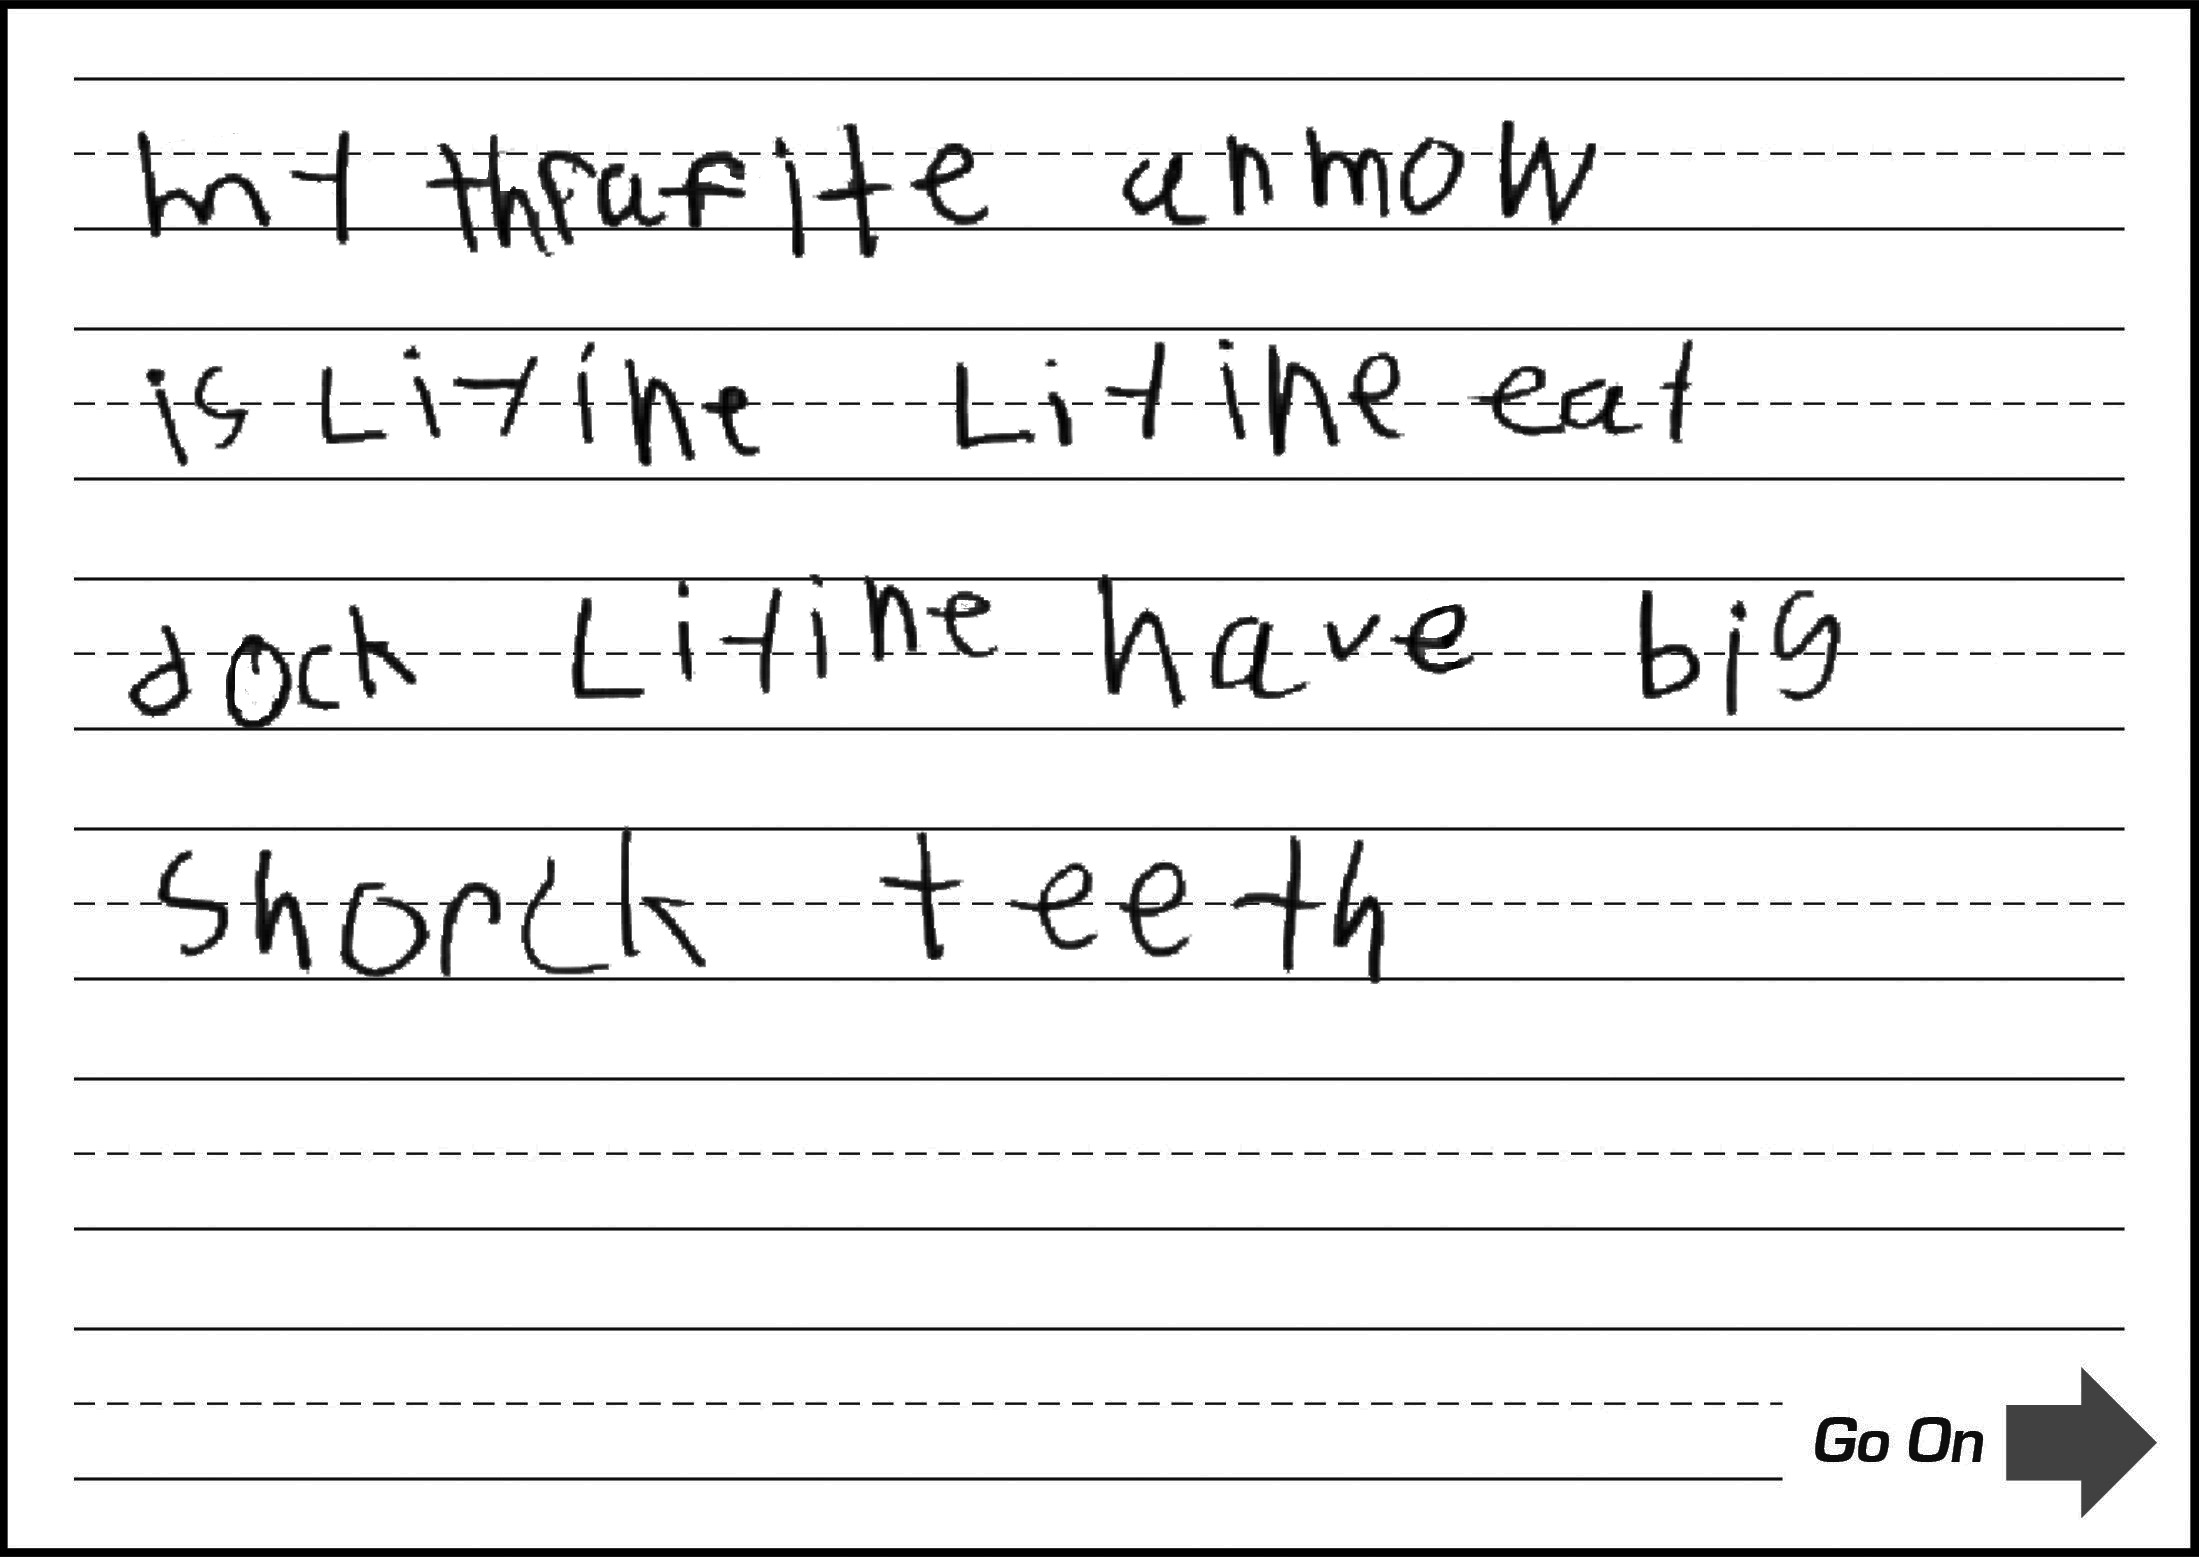 my thrafite anmow
is Litine Litine eat
dock Litine have big
shorck teeth
Go On